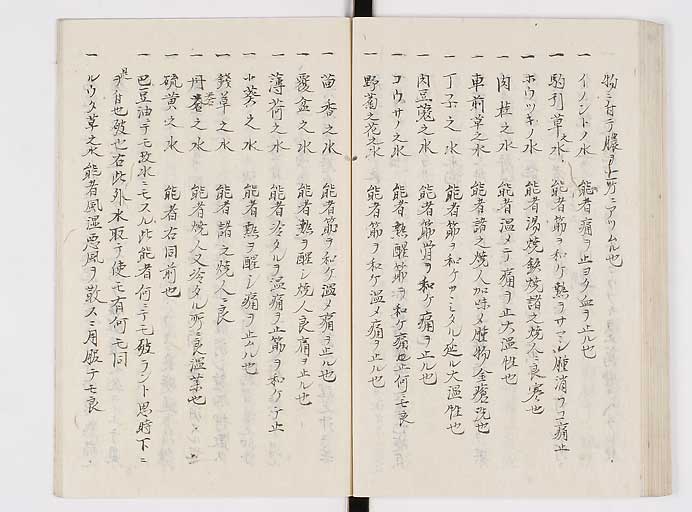 物ニ付テ膿ヲ一所ニアツムル也
一 イノンドノ水 能者痛ヲ止ヨク血ヲ止ル也
一 駒引草之水 能者筋ヲ和ケ熱ヲサマシ腫消ヲコ痛止
一 ホウツキノ水 能者湯焼鉄焼諸之焼人ニ良寒也
一 肉桂之水 能者温メテ痛ヲ止大温性也
一 車前草之水 能者諸之焼人加味メ腫物金瘡洗也
一 丁子之水 能者筋ヲ和ケカヽミタル延ル大温性也
一 肉豆蔲之水 能者筋骨ヲ和ケ痛ヲ止ル也
一 コウサイノ水 能者熱醒筋ヲ和ケ痛也止何ニモ良
一 野菊之花之水 能者筋ヲ和ケ温メ痛ヲ止ル也
一 茴香之水 能者筋ヲ和ケ温メ痛ヲ止ル也
一 覆盆之水 能者熱ヲ醒シ焼人良痛ヲ止ル也
一 薄荷之水 能者冷タルヲ温痛ヲ止筋ヲ和ケテ止
一 小葵之水 能者熱ヲ醒シ痛ヲ止ムル也
一 銭草之水 能者諸之焼人ニ良
一 丹之水 能者焼人又冷タル所ニ良温薬也
一 硫黄之水 能者右同前也
一 巴豆油ニテモ取水ニモスル此能者何ニテモ破ラント思時下ニ
ヲ付也破也右此外水取テ使モ有何モ同
一 ルウタ草之水 能者風湿悪風ヲ散ス二月服テモ良